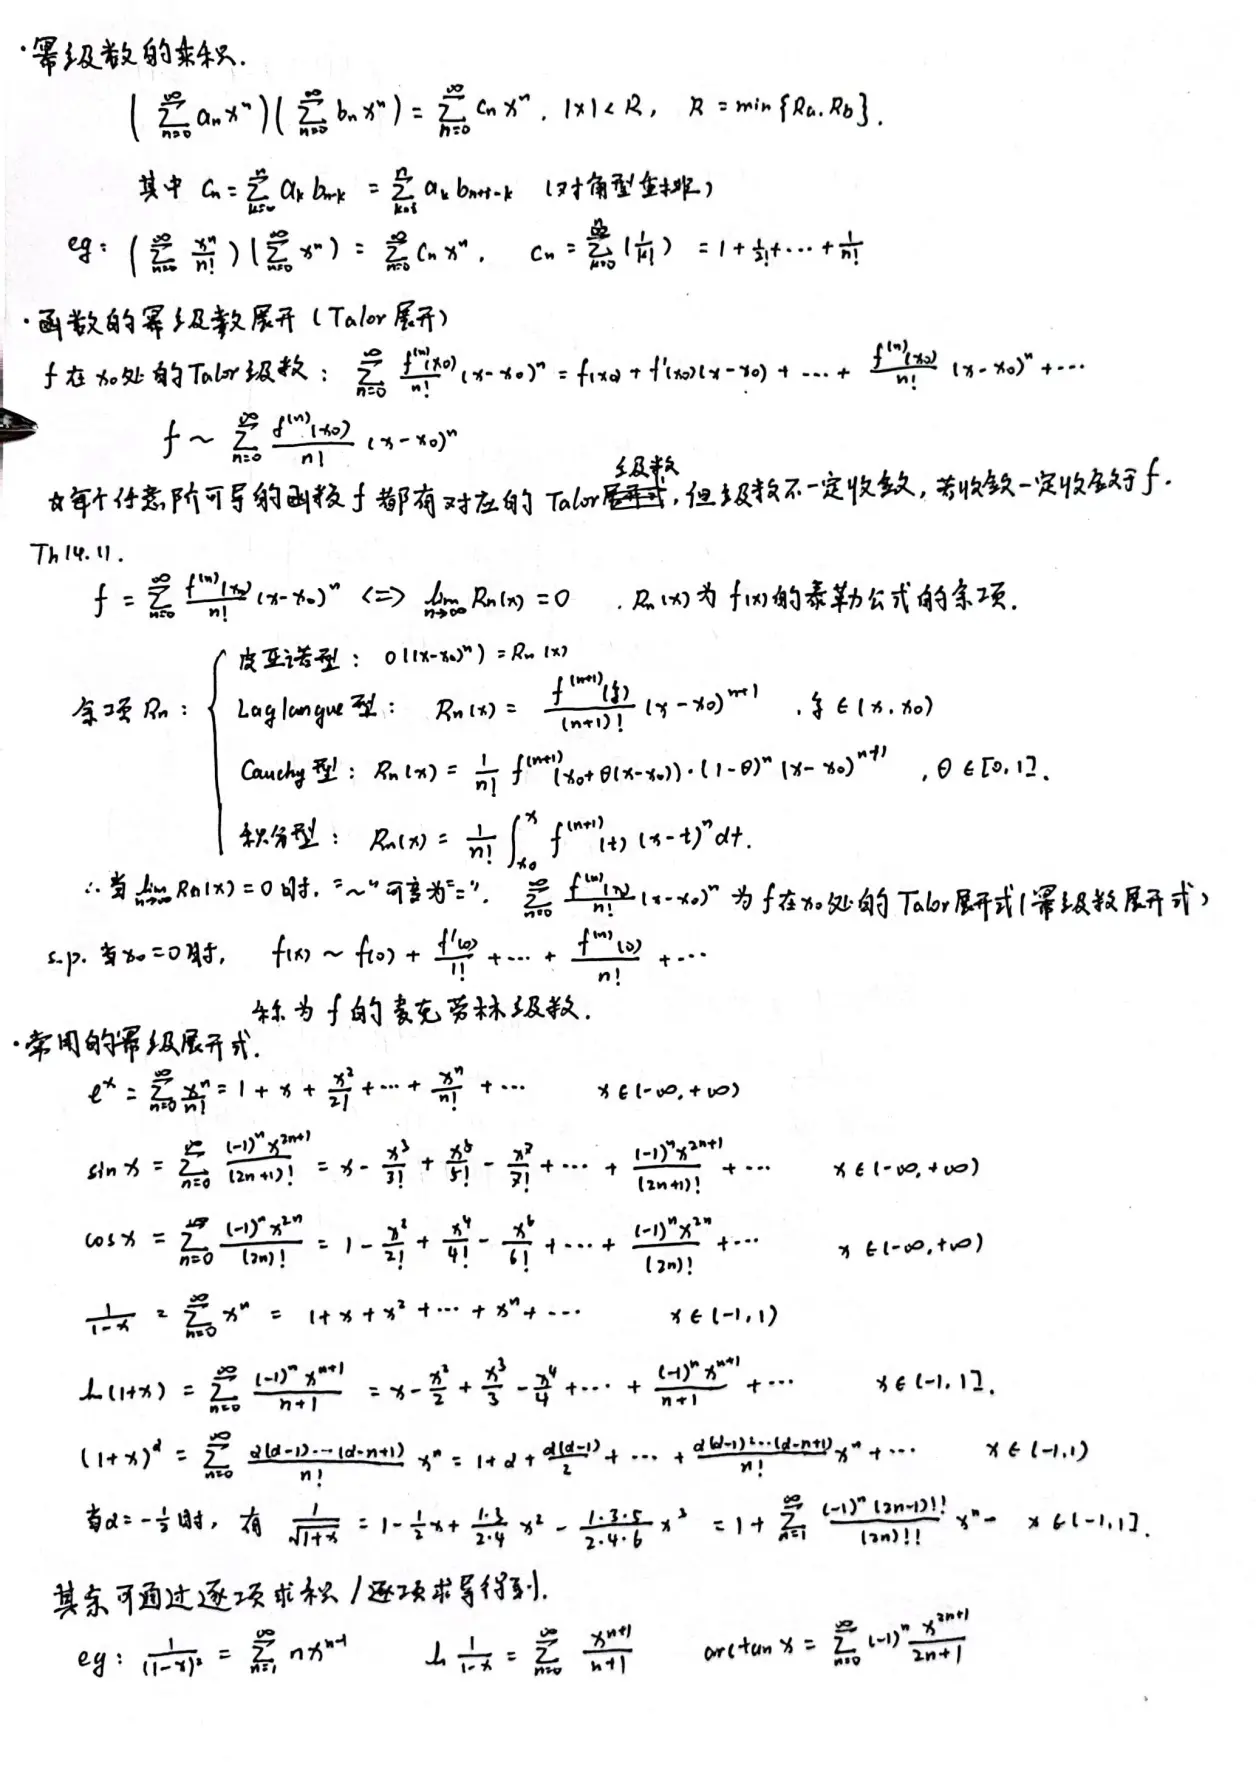 ·幂级数的乘积.
(∑_{n=0}^{∞} aₙxⁿ)(∑_{n=0}^{∞} bₙxⁿ) = ∑_{n=0}^{∞} cₙxⁿ, |x|<R, R=min{Ra,Rb}.
其中 cₙ=∑_{k=0}^{n} a_k b_{n-k} = ∑_{k=1}^{n} a_k b_{n+1-k} (对角型重排)
eg: (∑_{n=0}^{∞} xⁿ/n!)(∑_{n=0}^{∞} xⁿ) = ∑_{n=0}^{∞} cₙxⁿ, cₙ = ∑_{k=0}^{n} (1/k!) = 1+1/2!+…+1/n!
·函数的幂级数展开(Talor展开)
f在x₀处的Talor级数: ∑_{n=0}^{∞} f⁽ⁿ⁾(x₀)/n! (x-x₀)ⁿ = f(x₀)+f'(x₀)(x-x₀)+…+ f⁽ⁿ⁾(x₀)/n! (x-x₀)ⁿ+…
f ~ ∑_{n=0}^{∞} f⁽ⁿ⁾(x₀)/n! (x-x₀)ⁿ
☆每个任意阶可导的函数f都有对应的Talor级数,但级数不一定收敛,若收敛一定收敛于f.
Th14.11.
f = ∑_{n=0}^{∞} f⁽ⁿ⁾(x₀)/n! (x-x₀)ⁿ <=> lim_{n→∞} Rₙ(x)=0 ,Rₙ(x)为f(x)的泰勒公式的余项.
皮亚诺型: o((x-x₀)ⁿ)=Rₙ(x)
余项Rₙ: { Laglangue型: Rₙ(x) = f⁽ⁿ⁺¹⁾(ξ)/(n+1)! (x-x₀)ⁿ⁺¹ ,ξ∈(x,x₀)
Cauchy型: Rₙ(x) = 1/n! f⁽ⁿ⁺¹⁾(x₀+θ(x-x₀))·(1-θ)ⁿ(x-x₀)ⁿ⁺¹ ,θ∈[0,1].
积分型: Rₙ(x) = 1/n! ∫_{x₀}^{x} f⁽ⁿ⁺¹⁾(t)(x-t)ⁿdt.
∴当lim_{n→∞} Rₙ(x)=0时,"~"可变为"=", ∑_{n=0}^{∞} f⁽ⁿ⁾(x)/n! (x-x₀)ⁿ为f在x₀处的Talor展开式(幂级数展开式)
s.p. 当x₀=0时, f(x) ~ f(0)+ f'(0)/1! +…+ f⁽ⁿ⁾(0)/n! +…
称为f的麦克劳林级数.
·常用的幂级展开式.
eˣ = ∑_{n=0}^{∞} xⁿ/n! = 1+x+ x²/2! +…+ xⁿ/n! +… x∈(-∞,+∞)
sin x = ∑_{n=0}^{∞} (-1)ⁿx²ⁿ⁺¹/(2n+1)! = x - x³/3! + x⁵/5! - x⁷/7! +…+ (-1)ⁿx²ⁿ⁺¹/(2n+1)! +… x∈(-∞,+∞)
cos x = ∑_{n=0}^{∞} (-1)ⁿx²ⁿ/(2n)! = 1 - x²/2! + x⁴/4! - x⁶/6! +…+ (-1)ⁿx²ⁿ/(2n)! +… x∈(-∞,+∞)
1/(1-x) = ∑_{n=0}^{∞} xⁿ = 1+x+x²+…+xⁿ+… x∈(-1,1)
ln(1+x) = ∑_{n=0}^{∞} (-1)ⁿxⁿ⁺¹/(n+1) = x - x²/2 + x³/3 - x⁴/4 +…+ (-1)ⁿxⁿ⁺¹/(n+1) +… x∈(-1,1].
(1+x)^α = ∑_{n=0}^{∞} α(α-1)…(α-n+1)/n! xⁿ = 1+α+ α(α-1)/2 +…+ α(α-1)…(α-n+1)/n! xⁿ+… x∈(-1,1)
当α=-1/2时,有 1/√(1+x) = 1 - 1/2 x + 1·3/2·4 x² - 1·3·5/2·4·6 x³ = 1+∑_{n=1}^{∞} (-1)ⁿ(2n-1)!!/(2n)!! xⁿ- x∈(-1,1].
其余可通过逐项求积/逐项求导得到.
eg: 1/(1-x)² = ∑_{n=1}^{∞} nxⁿ⁻¹ ln 1/(1-x) = ∑_{n=0}^{∞} xⁿ⁺¹/(n+1) arctan x = ∑_{n=0}^{∞} (-1)ⁿ x²ⁿ⁺¹/(2n+1)